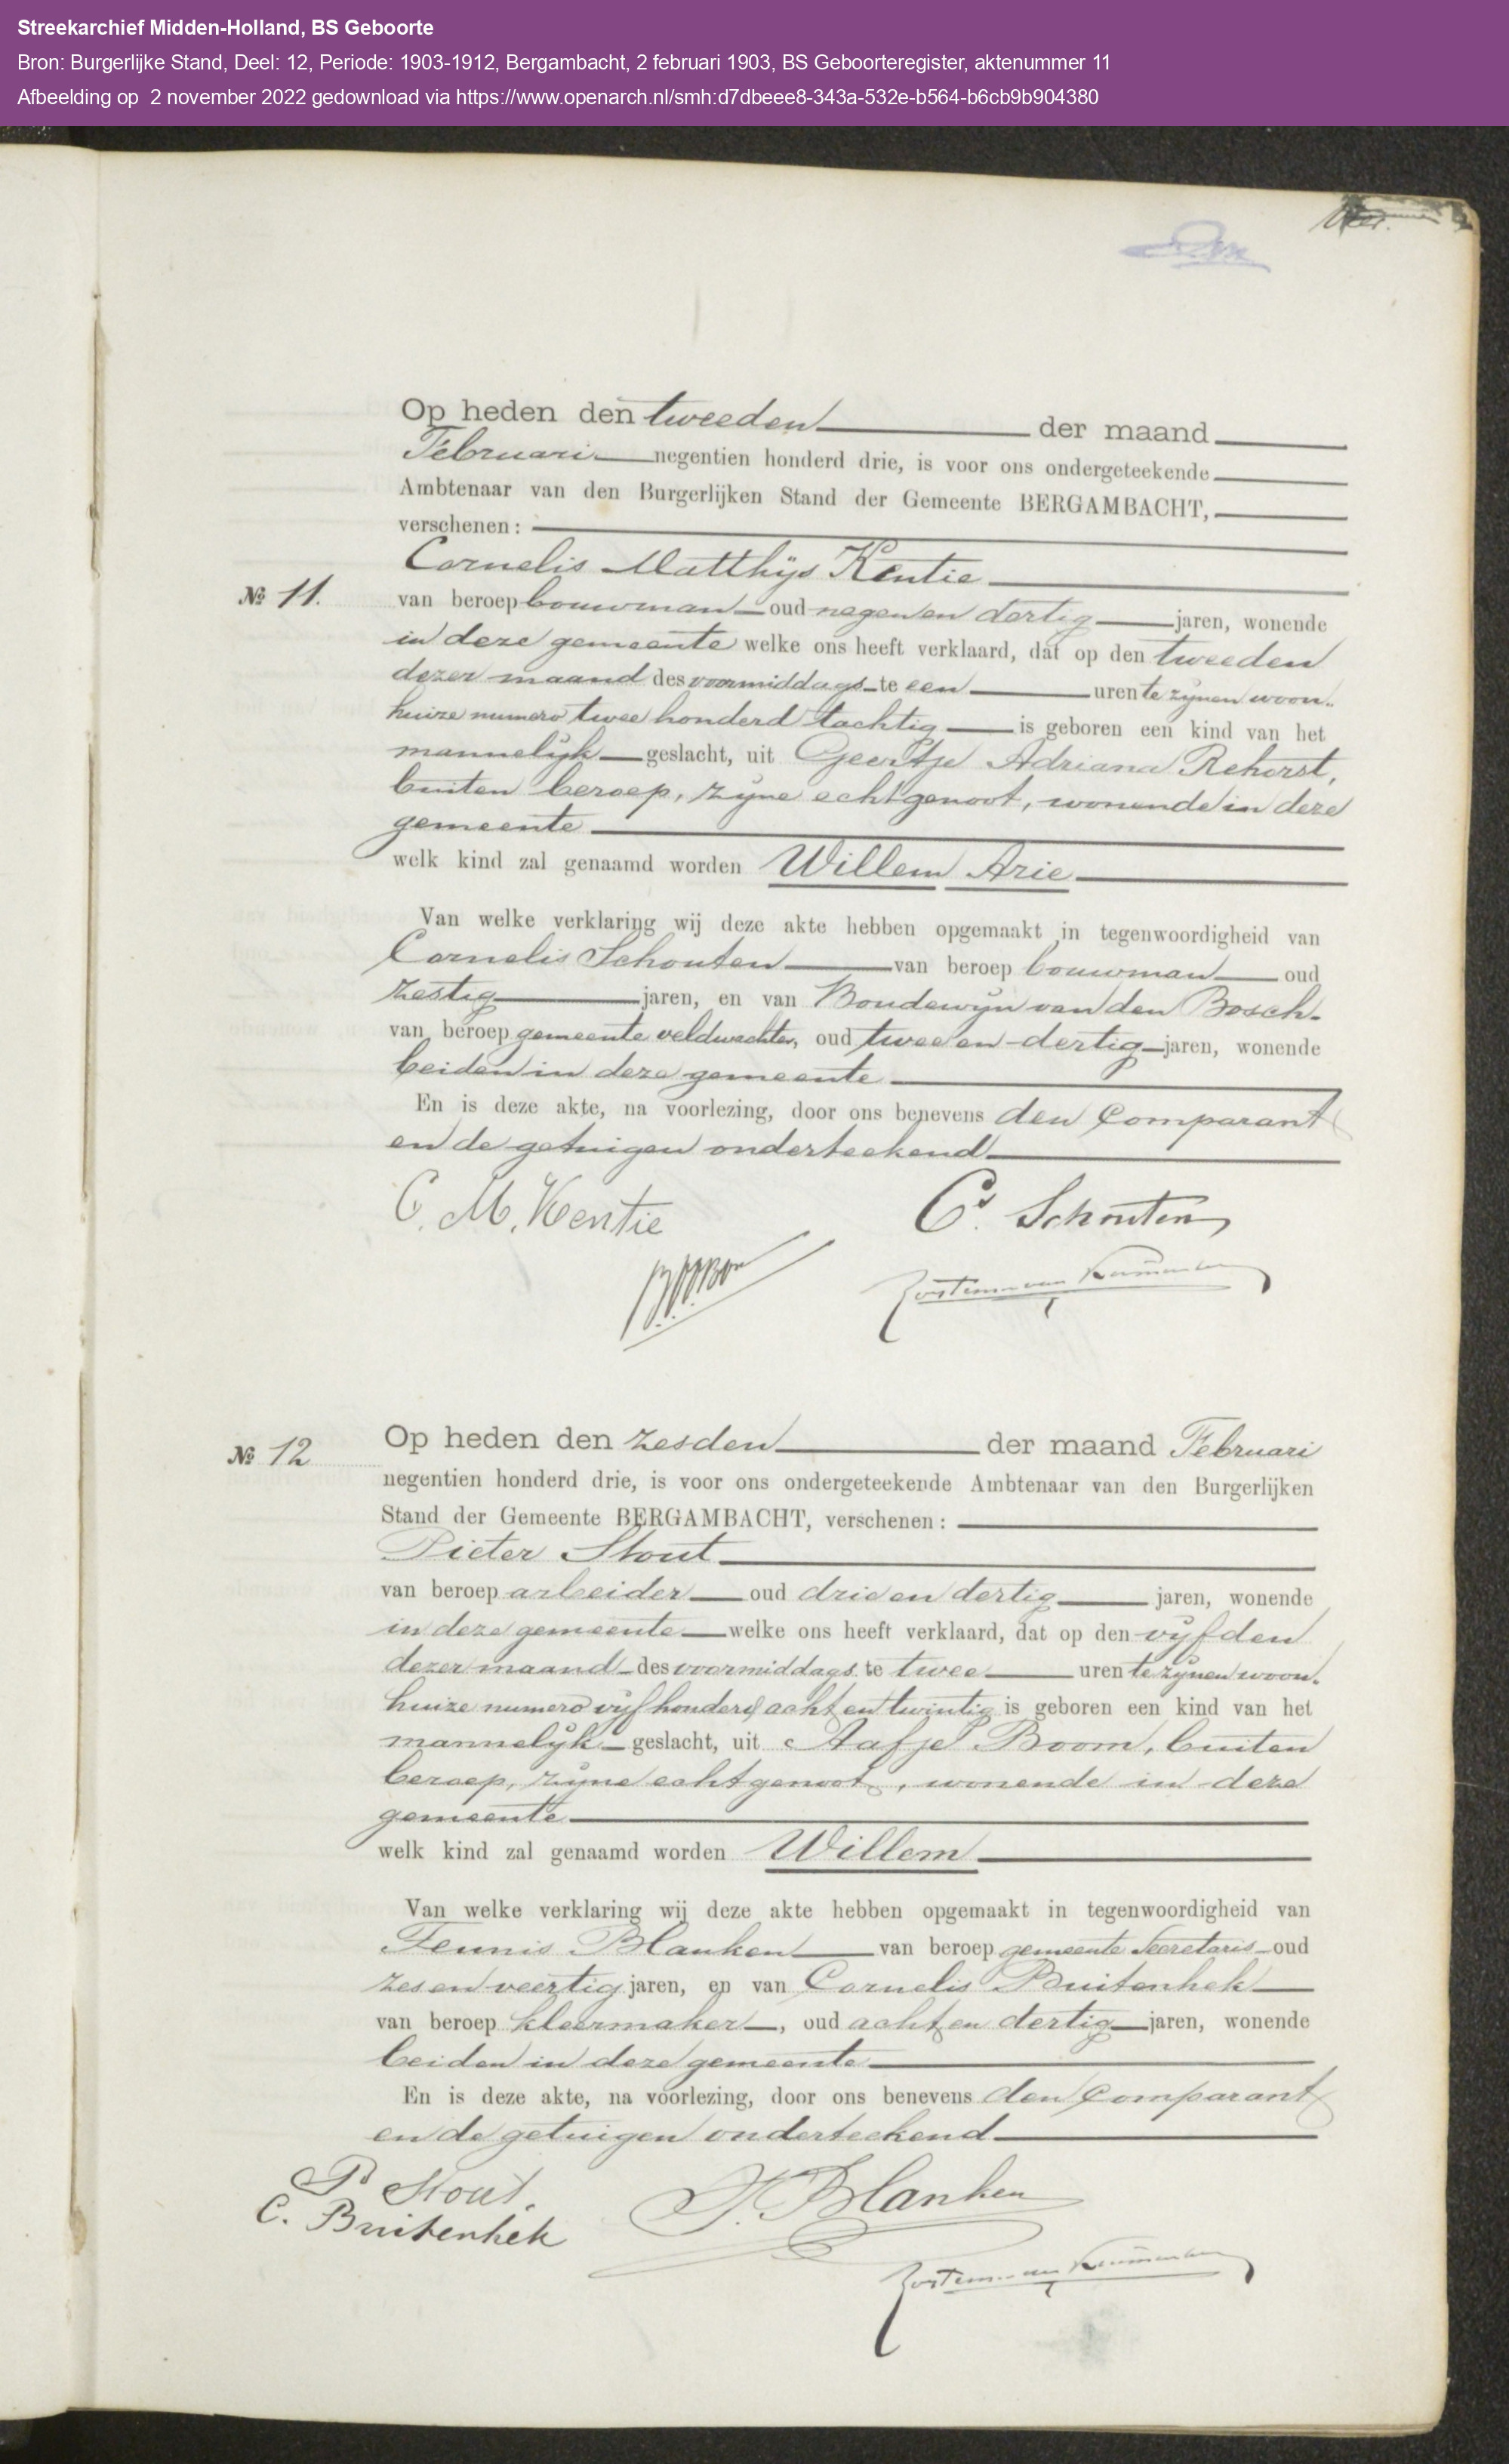 Streekarchief Midden-Holland, BS Geboorte
Bron: Burgerlijke Stand, Deel: 12, Periode: 1903-1912, Bergambacht, 2 februari 1903, BS Geboorteregister, aktenummer 11
Afbeelding op 2 november 2022 gedownload via https://www.openarch.nl/smh:d7dbeee8-343a-532e-b564-b6cb9b904380
Op heden den tweeden der maand
Februari negentien honderd drie, is voor ons ondergeteekende
Ambtenaar van den Burgerlijken Stand der Gemeente BERGAMBACHT,
verschenen:
Cornelis Matthijs Kentie
№ 11.
van beroep bouwman oud negen en dertig jaren, wonende
in deze gemeente welke ons heeft verklaard, dat op den tweeden
dezer maand des voormiddags te een uren te zijnen woon-
huize numero twee honderd tachtig is geboren een kind van het
mannelijk geslacht, uit Geertje Adriana Rehorst,
buiten beroep, zijne echtgenoot, wonende in deze
gemeente
welk kind zal genaamd worden Willem Arie
Van welke verklaring wij deze akte hebben opgemaakt in tegenwoordigheid van
Cornelis Schouten van beroep bouwman oud
zestig jaren, en van Boudewijn van den Bosch
van beroep gemeente veldwachter, oud twee en dertig jaren, wonende
beiden in deze gemeente
En is deze akte, na voorlezing, door ons benevens den Comparant
en de getuigen onderteekend
C. M. Kentie
Cs. Schouten
№ 12
Op heden den zesden der maand Februari
negentien honderd drie, is voor ons ondergeteekende Ambtenaar van den Burgerlijken
Stand der Gemeente BERGAMBACHT, verschenen:
Pieter Stout
van beroep arbeider oud drie en dertig jaren, wonende
in deze gemeente welke ons heeft verklaard, dat op den vijfden
dezer maand des voormiddags te twee uren te zijnen woon-
huize numero vijf honderd acht en twintig is geboren een kind van het
mannelijk geslacht, uit Aafje Boom, buiten
beroep, zijne echtgenoot, wonende in deze
gemeente
welk kind zal genaamd worden Willem
Van welke verklaring wij deze akte hebben opgemaakt in tegenwoordigheid van
Teunis Blanken van beroep gemeente Secretaris oud
zes en veertig jaren, en van Cornelis Buitenhek
van beroep kleermaker, oud acht en dertig jaren, wonende
beiden in deze gemeente
En is deze akte, na voorlezing, door ons benevens den Comparant
en de getuigen onderteekend
P Stout.
T. Blanken
C. Buitenhek